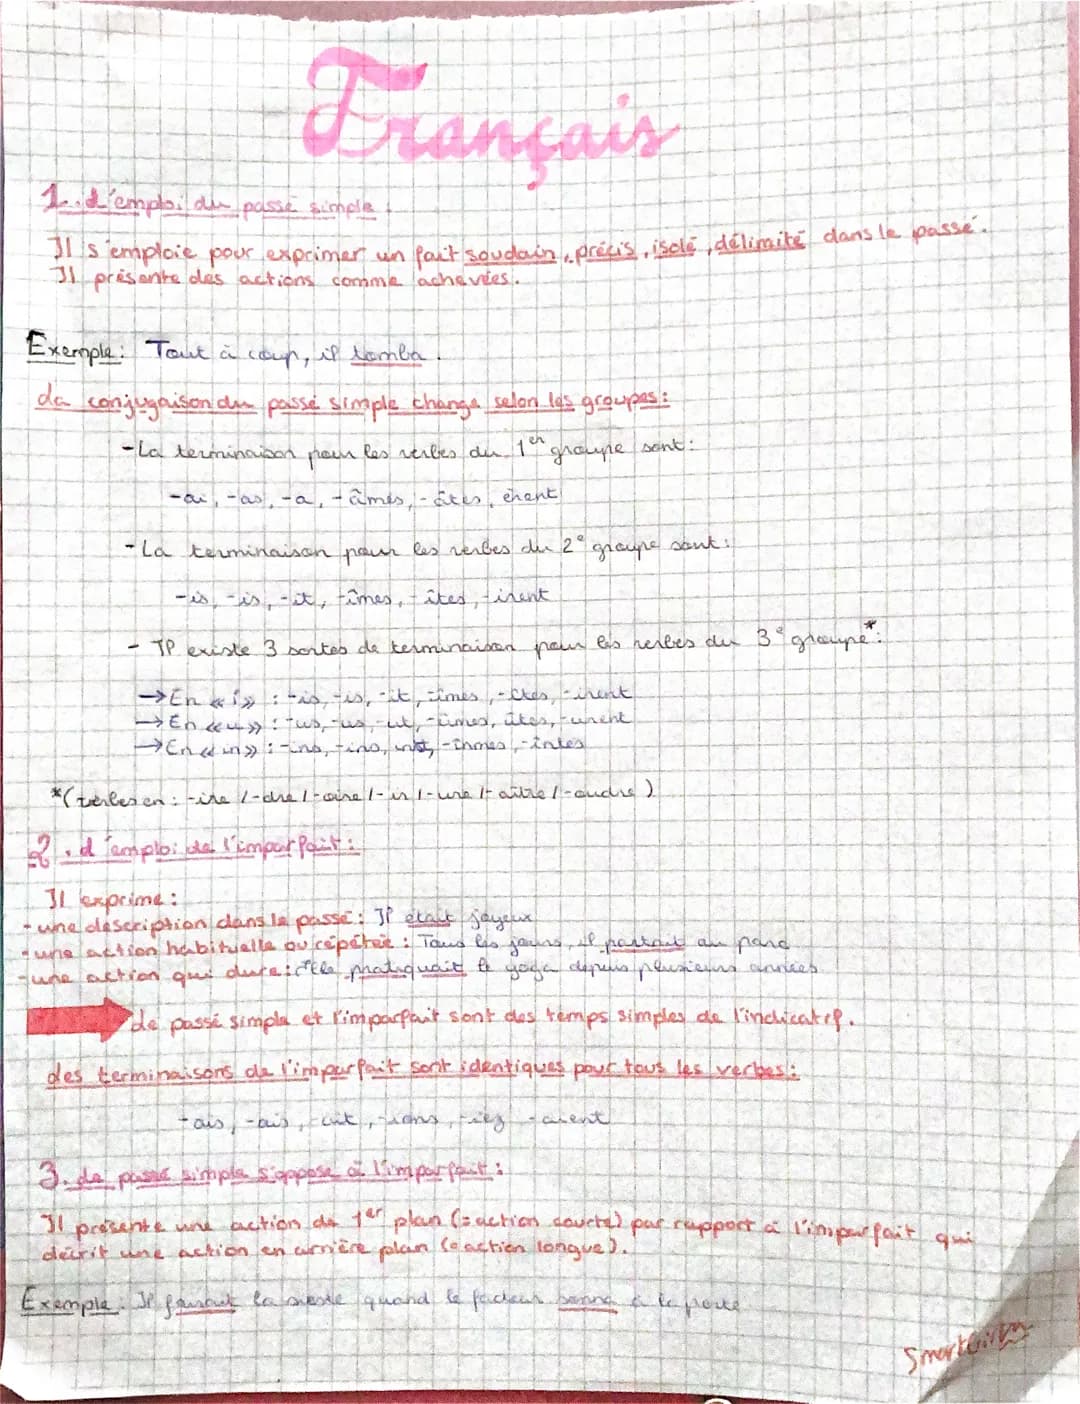 Français
1. L'emploi du passé simple :
Il s'emploie pour exprimer un fait soudain, précis, isolé, délimité dans le passé.
Il présente des actions comme achevées.
Exemple : Tout à coup, il tomba.
La conjugaison du passé simple change selon les groupes :
-La terminaison pour les verbes du 1er groupe sont :
-ai, -as, -a, -âmes, -âtes, èrent
-La terminaison pour les verbes du 2e groupe sont :
-is, -is, -it, -îmes, -îtes, -irent
- Il existe 3 sortes de terminaison pour les verbes du 3e groupe* :
→En «i» : -is, -is, -it, -îmes, -îtes, -irent
→En «u» : -us, -us, -ut, -ûmes, ûtes, -urent
→En «in» : -ins, -ins, int, -înmes, -întes
*(verbes en : -ire /-dre /-oire /-ir /-ure /-aître /-oudre)
2. L'emploi de l'imparfait :
Il exprime :
-une description dans le passé : Il était joyeux
-une action habituelle ou répétée : Tous les jours, il partait au parc
-une action qui dure : Elle pratiquait le yoga depuis plusieurs années
Le passé simple et l'imparfait sont des temps simples de l'indicatif.
Les terminaisons de l'imparfait sont identiques pour tous les verbes :
-ais, -ais, -ait, -ions, -iez -aient
3. Le passé simple s'oppose à l'imparfait :
Il présente une action de 1er plan (=action courte) par rapport à l'imparfait qui
décrit une action en arrière plan (=action longue).
Exemple : Il faisait la sieste quand le facteur sonna à la porte